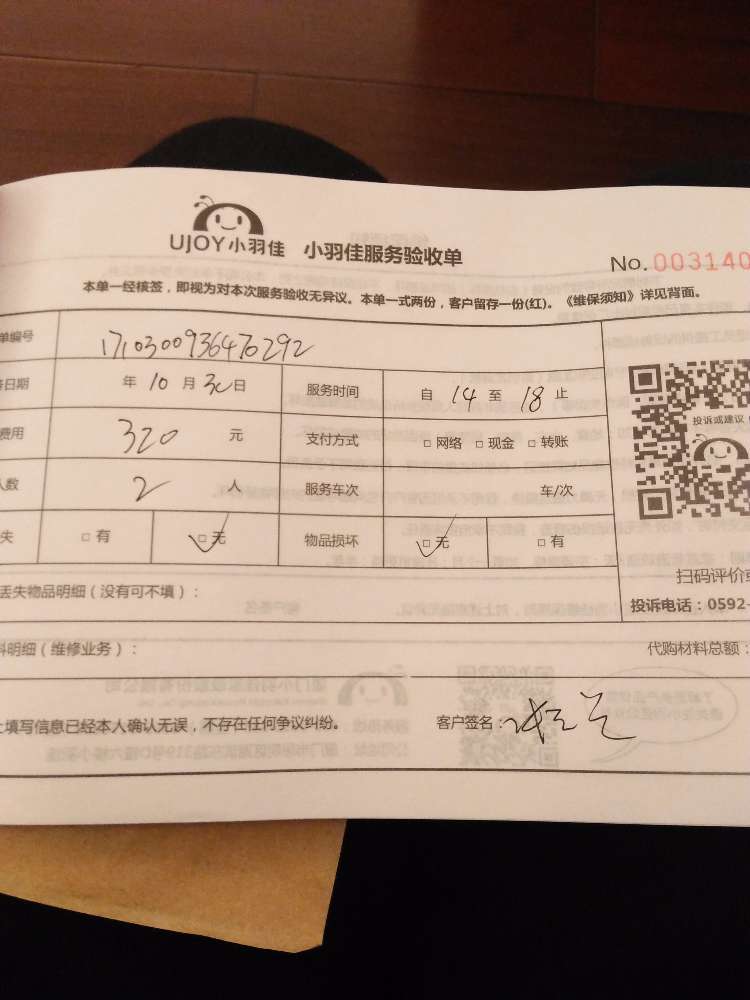 UJOY小羽佳 小羽佳服务验收单
No. 003140
本单一经核签，即视为对本次服务验收无异议。本单一式两份，客户留存一份(红)。《维保须知》详见背面。
单编号 171030093647​6292
日期 年 10 月 30 日 服务时间 自 14 至 18 止
费用 320 元 支付方式 □ 网络 □ 现金 □ 转账
人数 2 人 服务车次 车/次
失 □ 有 □ 无 物品损坏 □ 无 □ 有
投诉或建议
扫码评价或
投诉电话：0592-
丢失物品明细（没有可不填）：
料明细（维修业务）： 代购材料总额：
上填写信息已经本人确认无误，不存在任何争议纠纷。 客户签名：